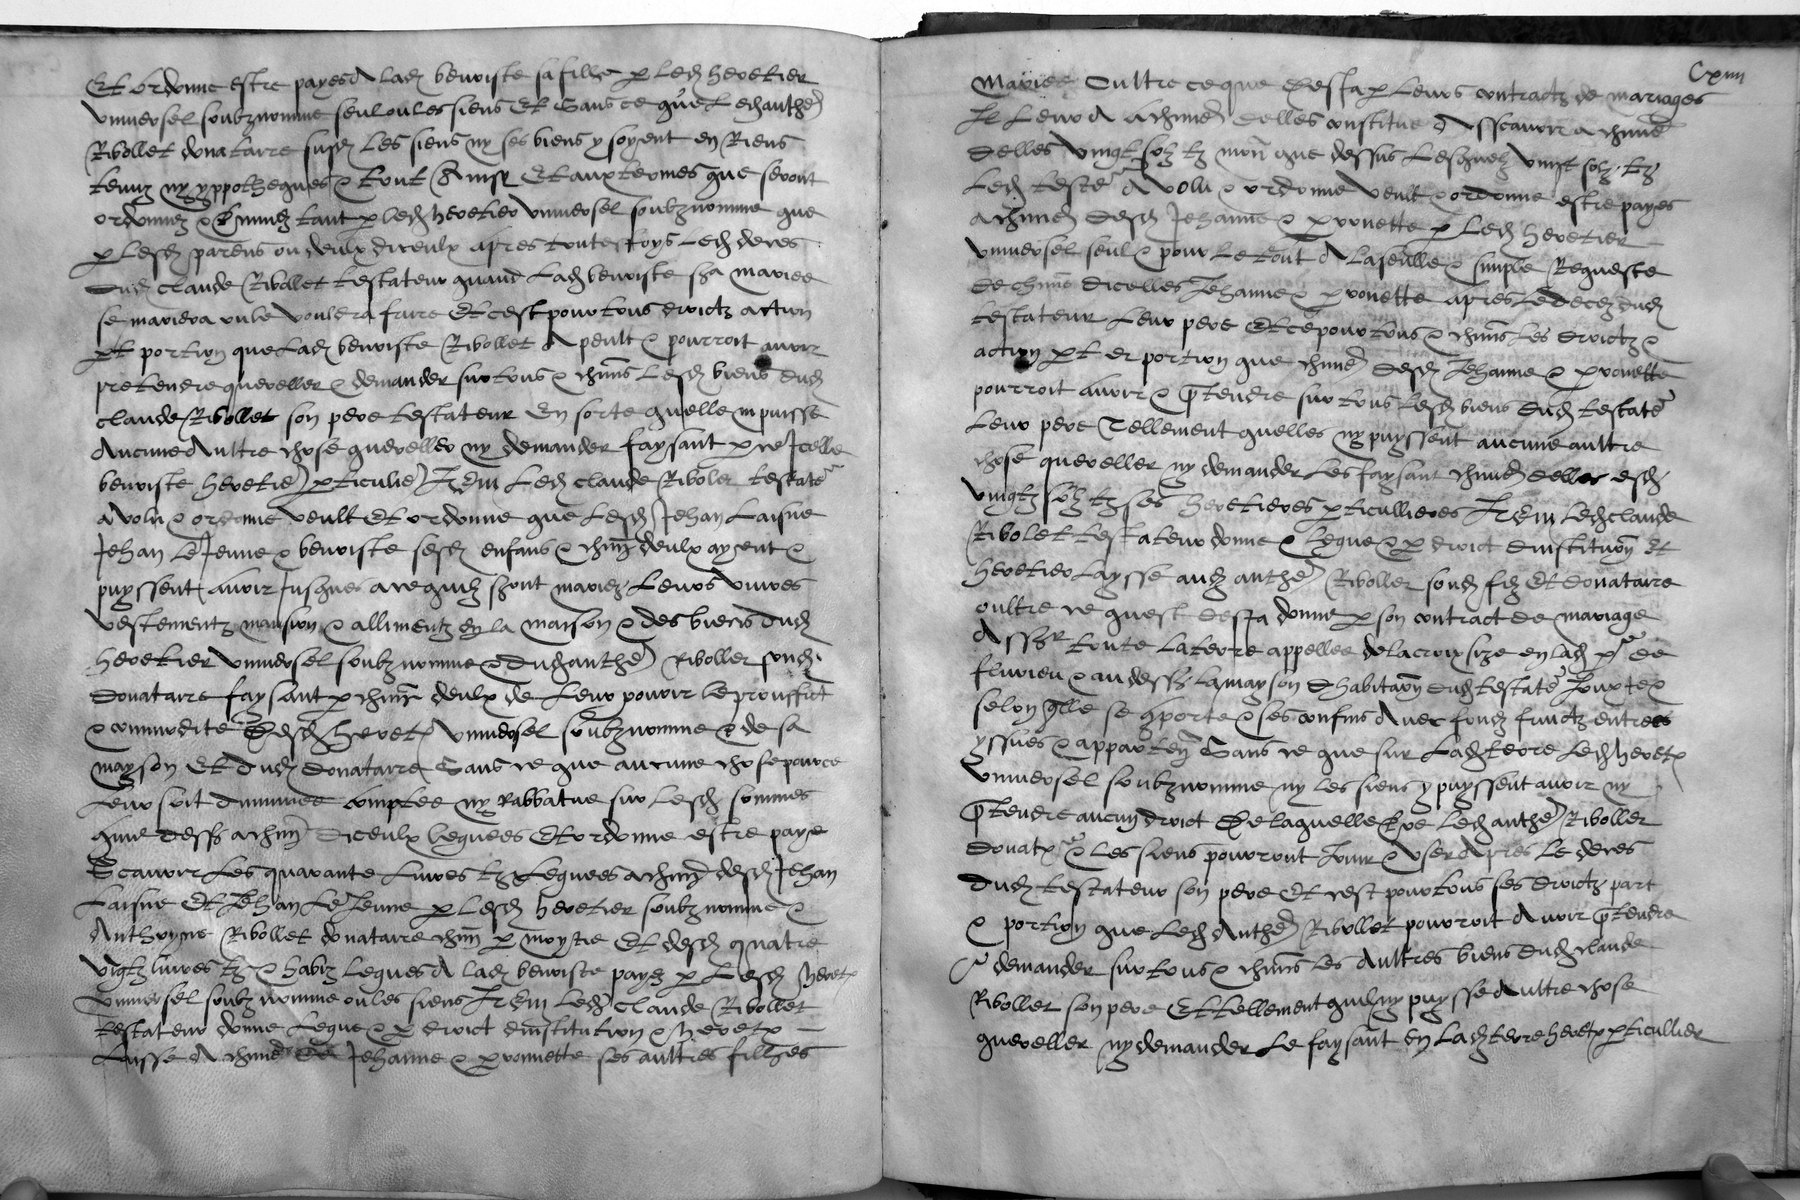 Et ordonne estre payes a lad benoiste sa fille p led heretier
universel soubznomme seul ou les siens Et sans ce que led anthe
Ribollet donataire susd les siens ny ses biens y soyent en Riens
tenuz ny yppotheques & tout Ainsi Et aux termes que seront
ordonnez & tant p led heretier universel soubznomme que
p lesd parens ou deulx diceulx apres toutesfoys led deces
dud claude Ribollet testateur quand lad benoiste sera mariee
se mariera ou le vouldra faire Et cest pour tous droictz action
pt portion que lad benoiste Ribollet a peult & pourroit avoir
pretendre quereller & demander sur tous & chms lesd biens dud
claude Ribollet son pere testateur En sorte quelle ny puisse
Aucune Aultre chose quereller ny demander faysant p ce Icelle
benoiste heretie pticulie Item led claude Ribolet testate
a volu & ordonne veult Et ordonne que lesd Jehan laisne
Jehan le Jeune & benoiste sesd enfans & chm deulx ayent &
puyssent avoir Jusques a ce quilz seront mariez leurs vivres
vestementz mansion & allimentz en la maison & des biens dud
heretier universel soubznomme & dud anthe Ribollet sond
donataire faysant p chm deulx de leur povoir le prouffict
& commodite desd heret universel soubznomme & de sa
mayson Et dud donataire Sans ce que aucune chose pource
leur soit diminuee comptee ny Rabbatue sur lesd sommes
que dess a chm diceulx leguees Et ordonne estre paye
Scavoir les quarante livres tz leguees a chm desd Jehan
laisne Et Jehan le Jeune p lesd heretier soubznomme &
Anthoyne Ribollet donataire chm p moytie Et desd quatre
vigtz livres tz & habiz legues A lad benoiste payez p lesd heret
universel soubznomme ou les siens Item led claude Ribollet
testateur donne legue & p droict dinstitution & heret
laisse A chune de Jehanne & pronnette ses aultres filhes

Cxiiii
Mariees Oultre ce que desja p leurs contractz de mariages
Il leur A a chune delles constitue Asscavoir a chune
delles vingt solz tz mon que dessus lesquelz vingt solz tz
led teste A volu & ordonne veult & ordonne estre payes
a chune desd Jehanne & pronette p led heretier
universel seul & pour le tout A la seulle & simple Requeste
de chune dicelles Jehanne & pronette apres le decez dud
testateur leur pere Et ce pour tous & chms les droictz &
action pt et portion que chune desd Jehanne & pronette
pourroit avoir & ptendre sur tous lesd biens dud testate
leur pere Tellement quelles ny puyssent aucune aultre
chose quereller ny demander les faysant chune delles esd
vingtz solz tz ses heretieres pticullieres Item led claude
Ribolet testateur donne & legue & p droict dinstitution Et
heretier laysse aud anthe Ribollet sond filz Et donataire
oultre ce quest desja donne p son contract de mariage
Assr toute la terre appellee de la croix size en lad p de
fleurieu & au dessz la mayson dhabitaon dud testate Jouxte &
selon qlle se qporte & ses confins Avec fondz fruictz entrees
yssues & apparten Sans ce que sur lad terre led heret
universel soubznomme ny les siens y puyssent avoir ny
ptendre aucun droict De laquelle tre led anthe Ribollet
donat & les siens pourront Jouir & user Apres le deces
dud testateur son pere Et cest pour tous ses droictz part
& portion que led Anthe Ribollet pourroit Avoir ptendre
& demander sur tous & chms les Aultres biens dud claude
Ribollet son pere Et tellement quil ny puysse Aultre chose
quereller ny demander le faysant en lad terre heret pticullier